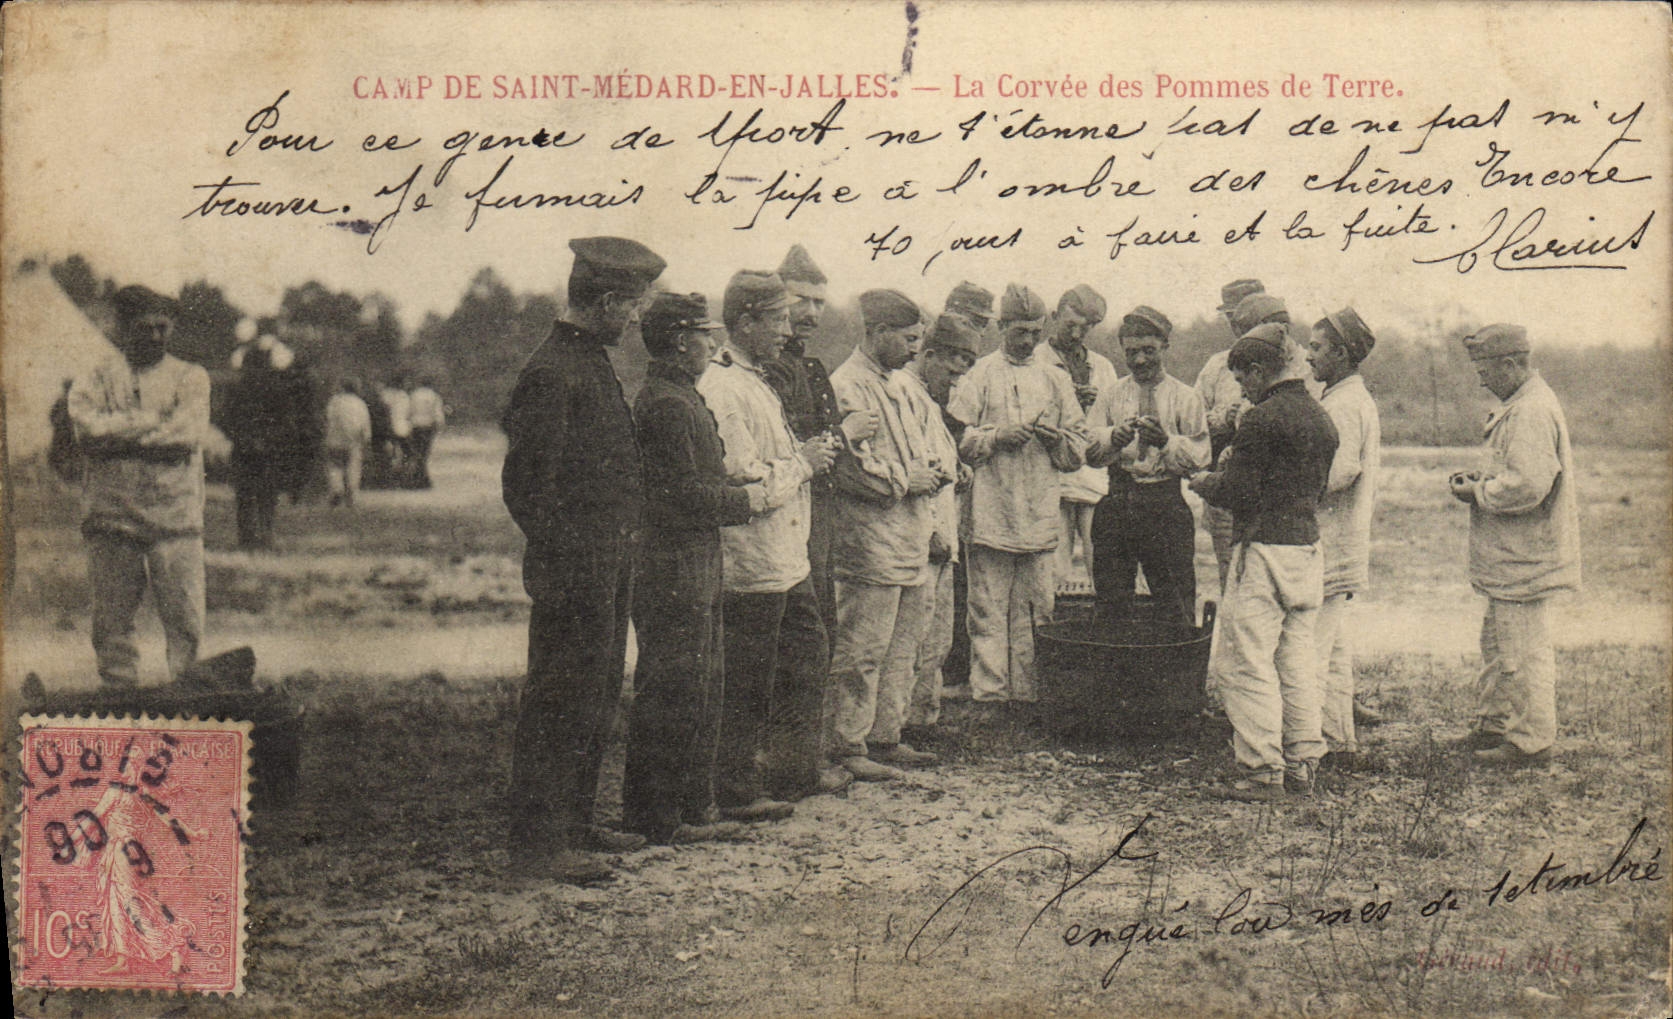 CAMP DE SAINT-MÉDARD-EN-JALLES. — La Corvée des Pommes de Terre.
Pour ce genre de sport ne t'étonne pas de ne pas m'y
trouver. Je fumais la pipe à l'ombre des chênes Encore
70 jours à faire et la fuite.
Marius
Vengué lou mès de setembré
RÉPUBLIQUE FRANÇAISE
10c
POSTES
edit.